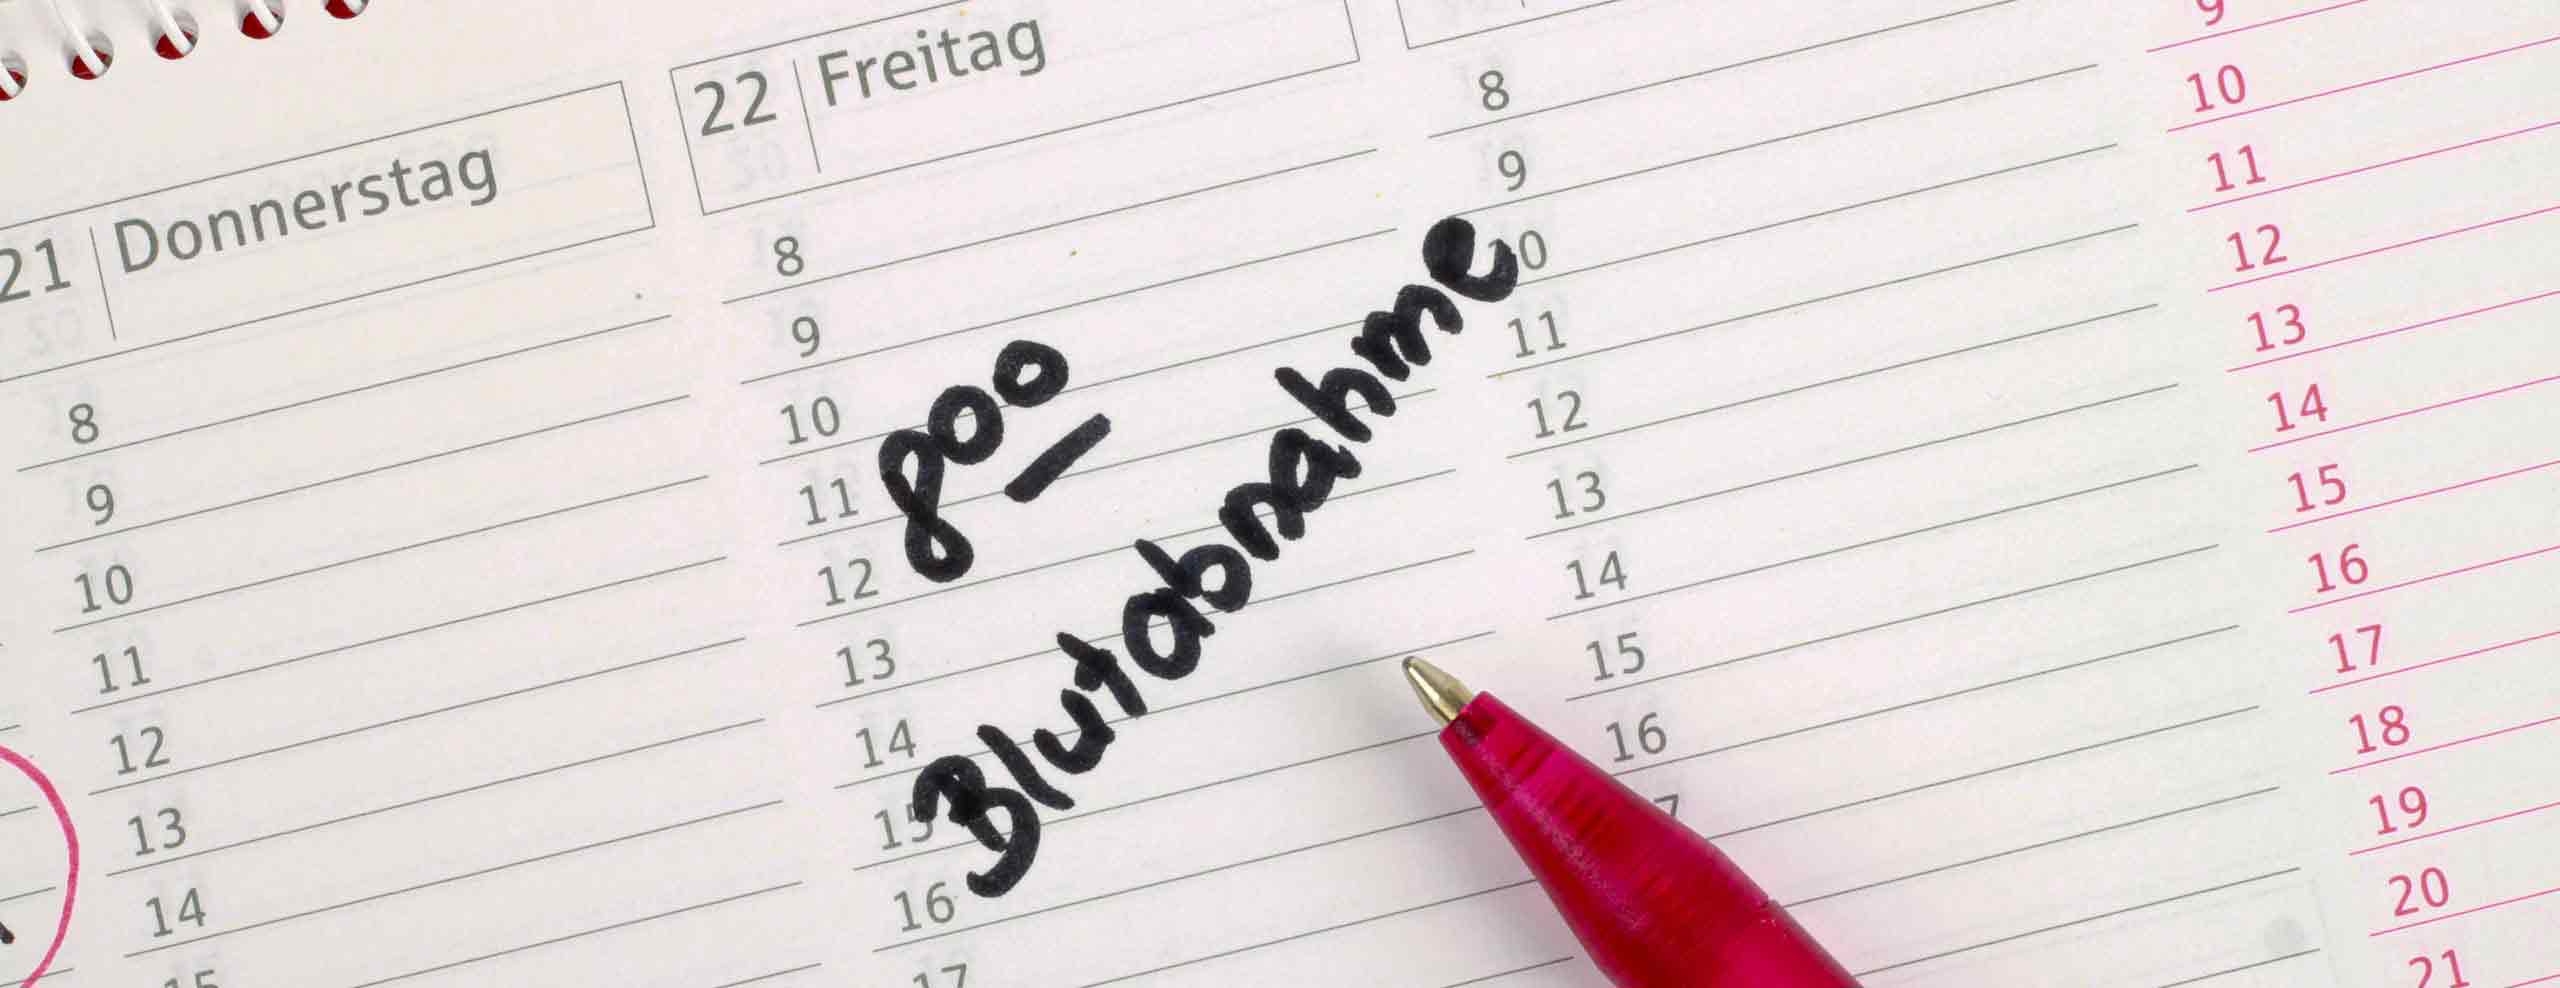 21 Donnerstag
8
9
10
11
12
13
14
15
22 Freitag
8
9
10
11
12
13
14
15
16
17
800
Blutabnahme
8
9
10
11
12
13
14
15
16
17
9
10
11
12
13
14
15
16
17
18
19
20
21